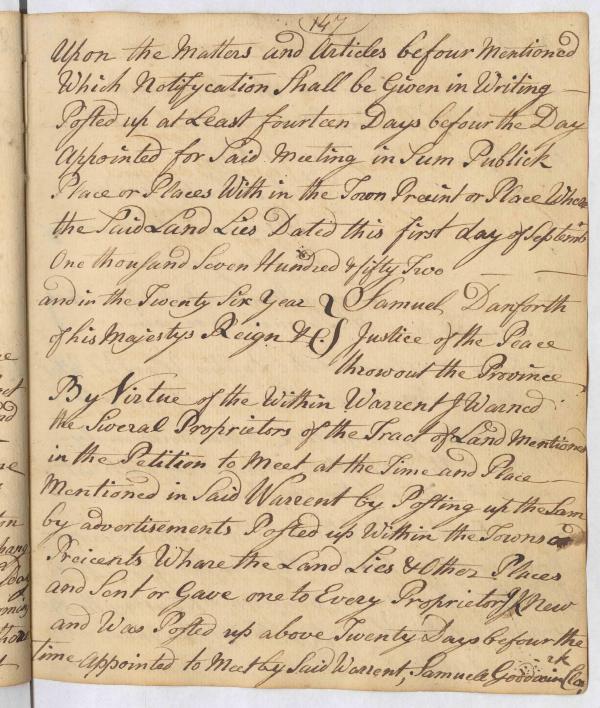 147
Upon the Matters and Articles befour Mentioned
Which Notifycation Shall be Given in Writing
Posted up at Least fourteen Days befour the Day
Appointed for Said Meeting in Sum Publick
Place or Places With in the Town Precint or Place Whare
the Said Land Lies Dated this first day of Septemb
One thousand Seven Hundred & fifty Two
and in the Twenty Six Year } Samuel Danforth
of his Majestys Reign &C. } Justice of the Peace
throwout the Province
By Virtue of the Within Warrent I Warned
the Several Proprietors of the Tract of Land Mentioned
in the Petition to Meet at the Time and Place
Mentioned in Said Warrent by Posting up the Sam
by advertisements Posted up Within the Towns
Preicents Whare the Land Lies & Other Places
and Sent or Gave one to Every Proprietor I Knew
and Was Posted up above Twenty Days befour the
time Appointed to Meet by Said Warrent, Samuel Goodwin Clark